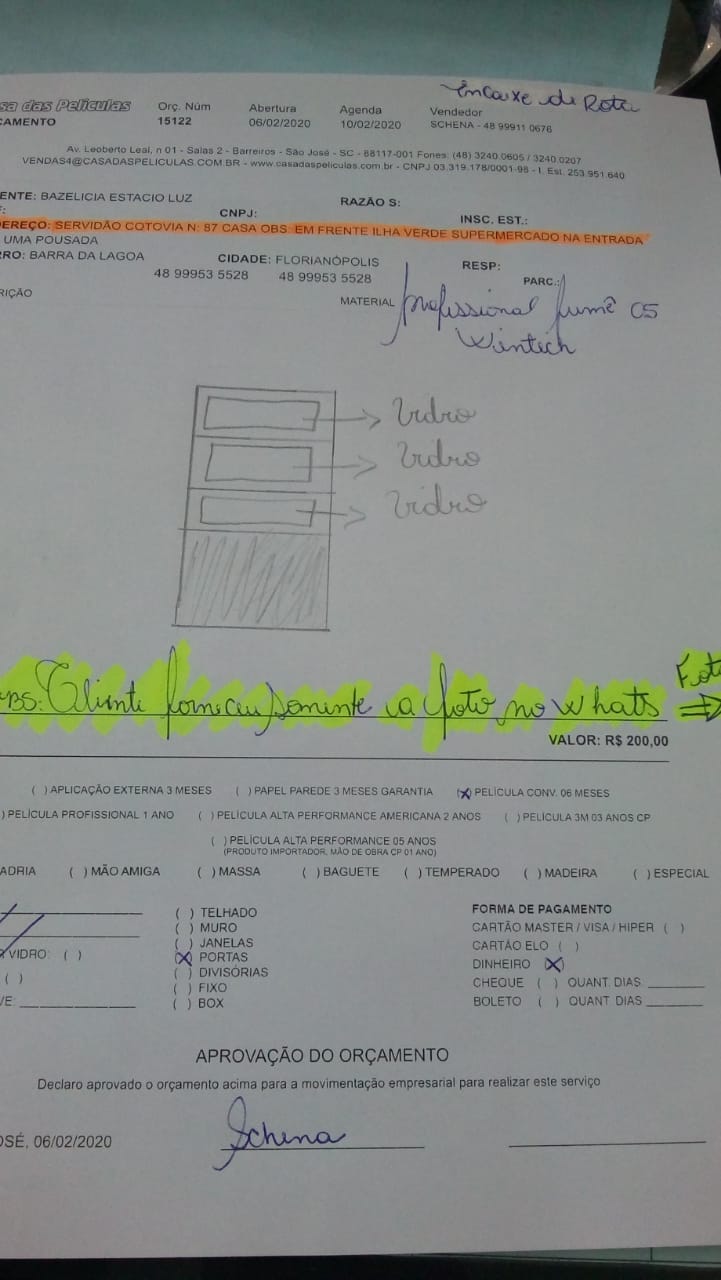 Encaixe de Rota
sa das Películas Orç. Núm Abertura Agenda Vendedor
CAMENTO 15122 06/02/2020 10/02/2020 SCHENA - 48 99911 0676
Av. Leoberto Leal, n 01 - Salas 2 - Barreiros - São José - SC - 88117-001 Fones: (48) 3240.0605 / 3240.0207
VENDAS4@CASADASPELICULAS.COM.BR - www.casadaspeliculas.com.br - CNPJ 03.319.178/0001-98 - I. Est. 253.951.640
ENTE: BAZELICIA ESTACIO LUZ RAZÃO S:
F: CNPJ: INSC. EST.:
DEREÇO: SERVIDÃO COTOVIA N: 87 CASA OBS: EM FRENTE ILHA VERDE SUPERMERCADO NA ENTRADA
UMA POUSADA
RRO: BARRA DA LAGOA CIDADE: FLORIANÓPOLIS RESP:
48 99953 5528 48 99953 5528 PARC.:
RIÇÃO MATERIAL profissional fumê 05
Wintech
Vidro
Vidro
Vidro
OBS: Cliente forneceu somente a foto no whats Foto
VALOR: R$ 200,00
( ) APLICAÇÃO EXTERNA 3 MESES ( ) PAPEL PAREDE 3 MESES GARANTIA (X) PELÍCULA CONV. 06 MESES
) PELÍCULA PROFISSIONAL 1 ANO ( ) PELÍCULA ALTA PERFORMANCE AMERICANA 2 ANOS ( ) PELÍCULA 3M 03 ANOS CP
( ) PELÍCULA ALTA PERFORMANCE 05 ANOS
(PRODUTO IMPORTADOR, MÃO DE OBRA CP 01 ANO)
ADRIA ( ) MÃO AMIGA ( ) MASSA ( ) BAGUETE ( ) TEMPERADO ( ) MADEIRA ( ) ESPECIAL
( ) TELHADO FORMA DE PAGAMENTO
( ) MURO CARTÃO MASTER / VISA / HIPER ( )
( ) JANELAS CARTÃO ELO ( )
VIDRO: ( ) (X) PORTAS DINHEIRO (X)
( ) ( ) DIVISÓRIAS CHEQUE ( ) QUANT. DIAS
VE: ( ) FIXO BOLETO ( ) QUANT DIAS
( ) BOX
APROVAÇÃO DO ORÇAMENTO
Declaro aprovado o orçamento acima para a movimentação empresarial para realizar este serviço
OSÉ, 06/02/2020 Schena